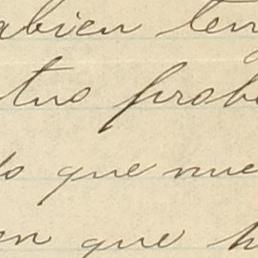 abien ten
tus prob
do que nue
en que h